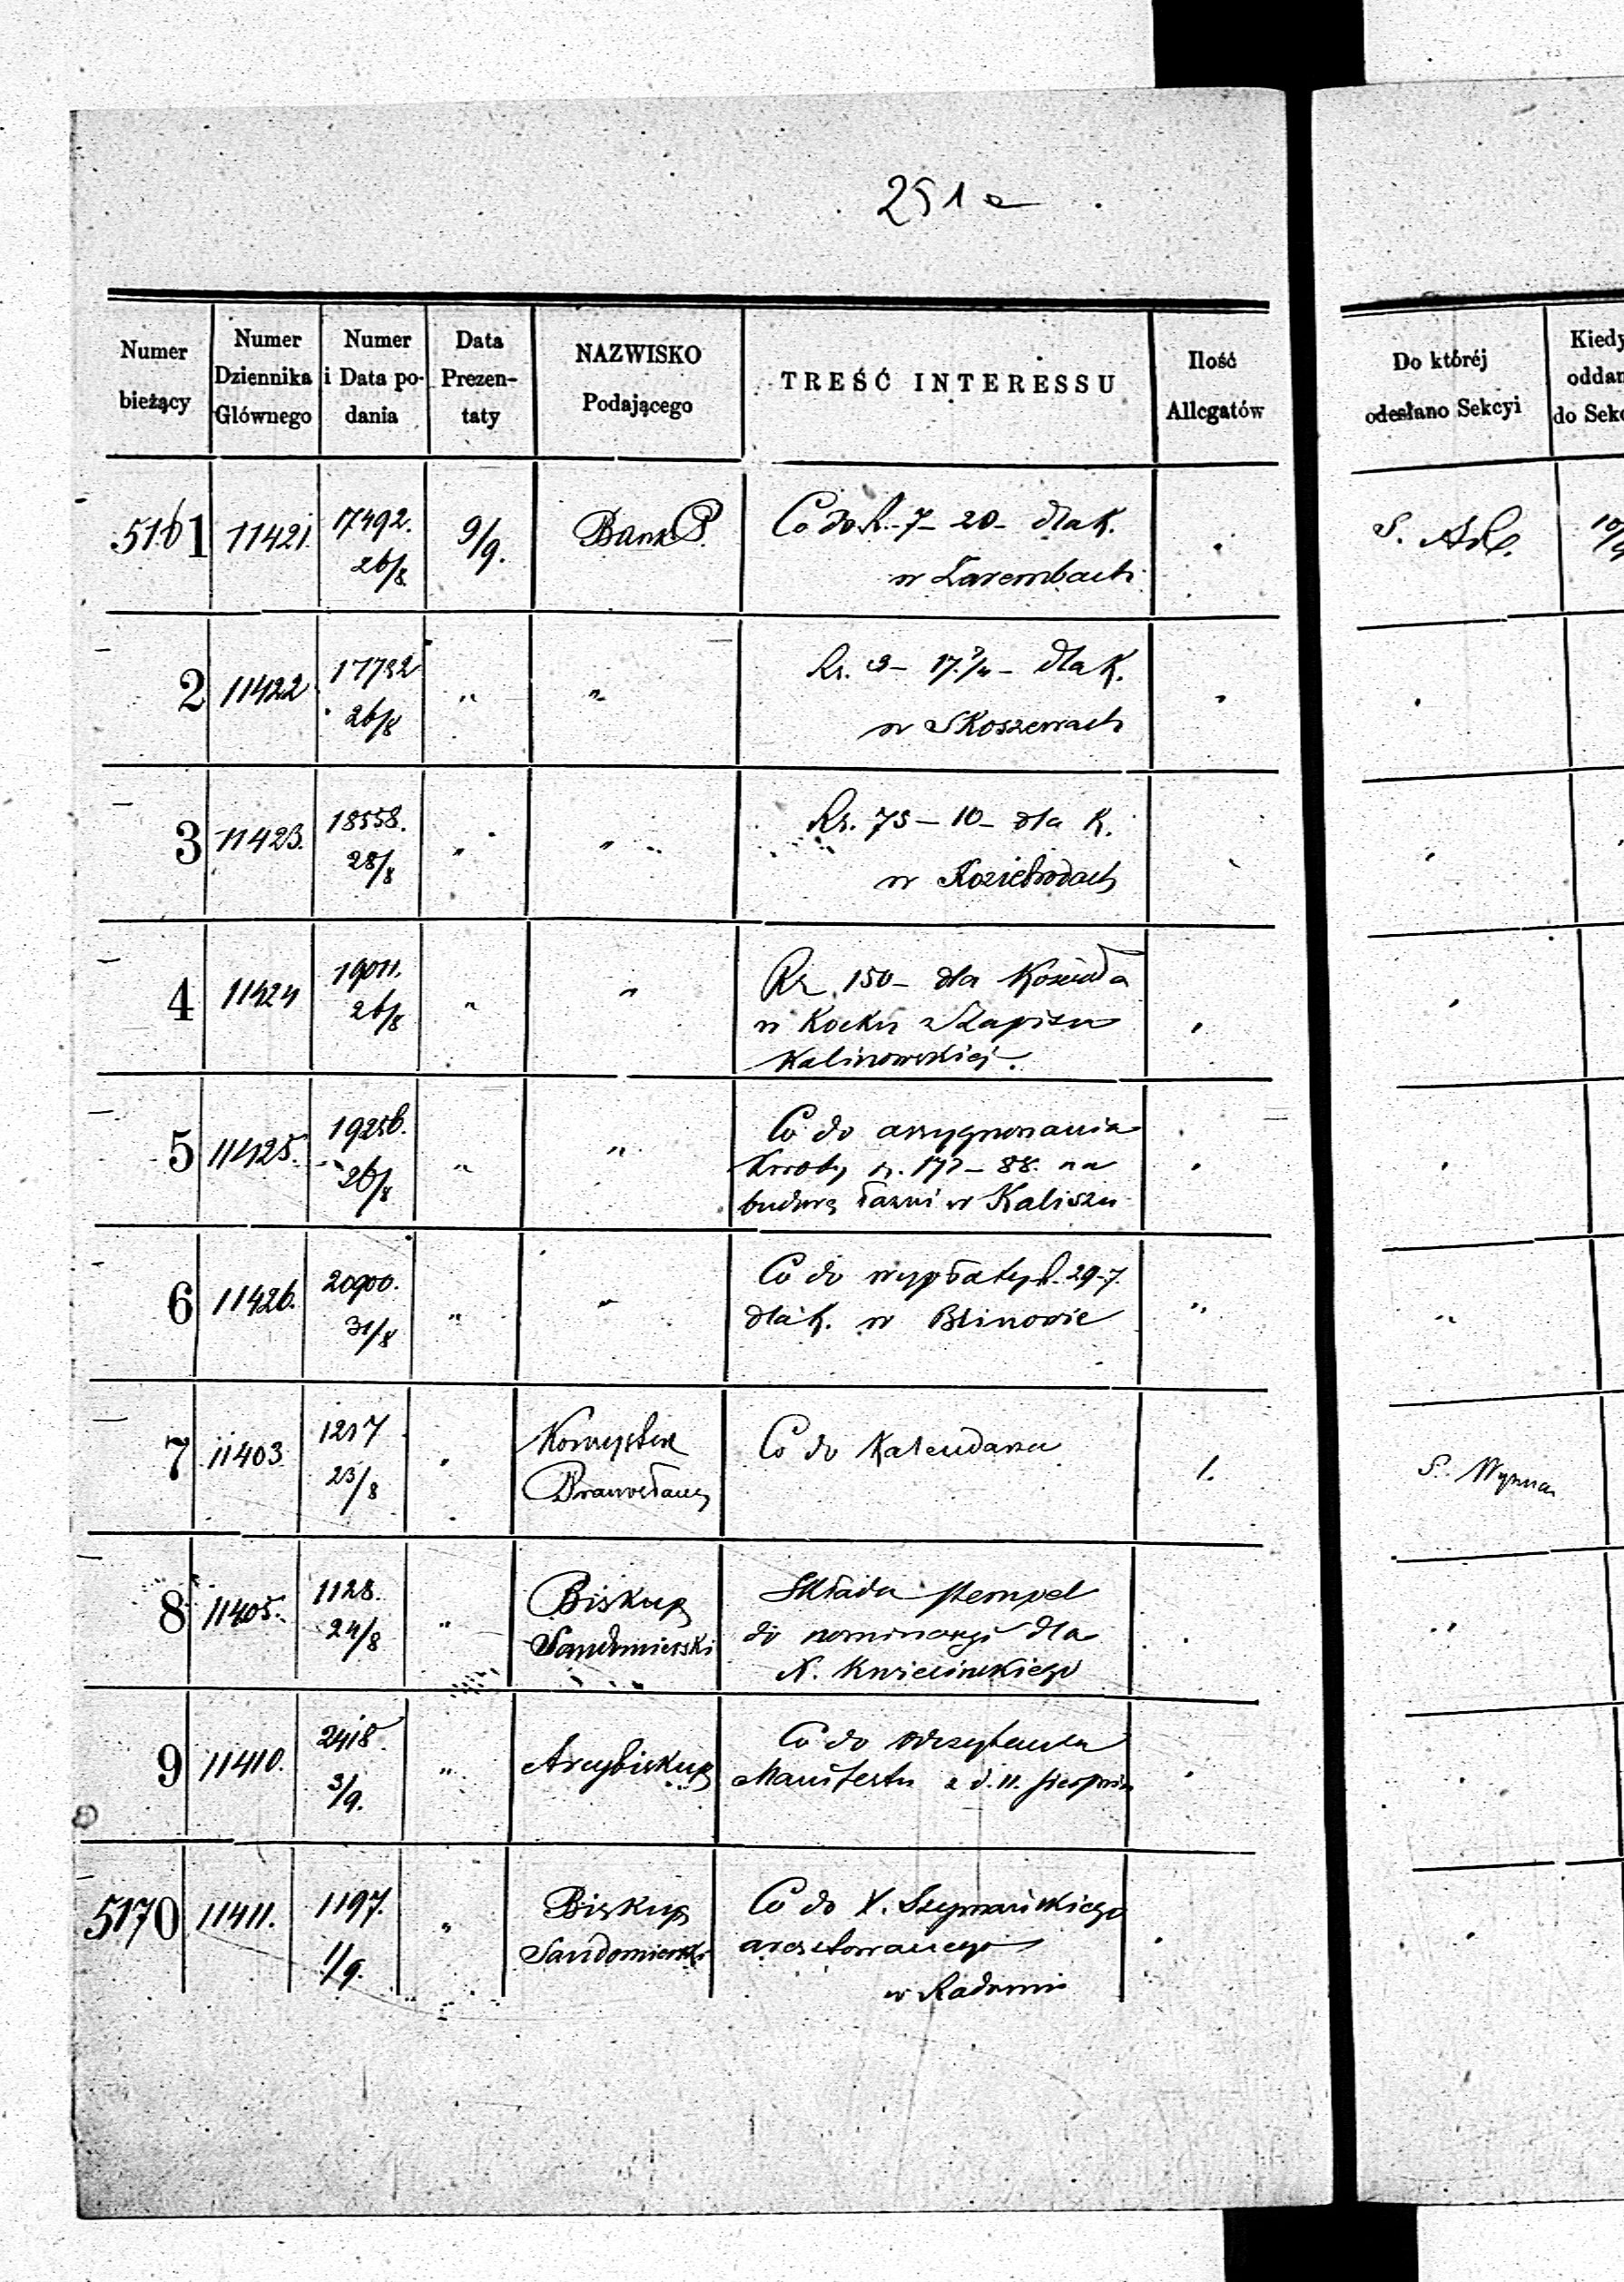 251a
Numer bieżący
Numer Dziennika Głównego
Numer i Data podania
Data Prezentaty
NAZWISKO Podającego
TREŚĆ INTERESSU
Ilość Allegatów
Do któréj odesłano Sekcyi
Kiedy oddan do Sekc
5161 11421. 17492. 9/9. Bank P. Co do R. 7 – 20 – dla K.
26/8 w Zarembach
2 11422 17732 " " Rs. 3 – 17 1/2 – dla K.
26/8 w Skoszewach
3 11423. 18558. " " Rs. 75 – 10 – dla K.
28/8 w Koziebrodach
4 11424 19011. " " Rs. 150 – dla Kościoła
26/8 w Kocku z Zapisu
Kalinowskiej.
5 11425. 19256. " " Co do assygnowania
26/8 kwoty r. 177 – 88. na
budowę łaźni w Kaliszu
6 11426. 20900. " " Co do wypłaty R. 29-7.
31/8 dla K. w Blinowie
7 11403. 1217 " Konsystorz Co do Kalendarza 1.
23/8
8 11405. 1128. " Biskup Składa stempel
24/8 Sandomierski do nominacyi dla
X. Kwiecińskiego
9 11410. 2418 " Arcybiskup Co do odczytania
3/9. Manifestu z d. 11. sierpnia
5170 11411. 1197. " Biskup Co do X. Szymańskiego
1/9. Sandomierski aresztowanego
w Radomiu